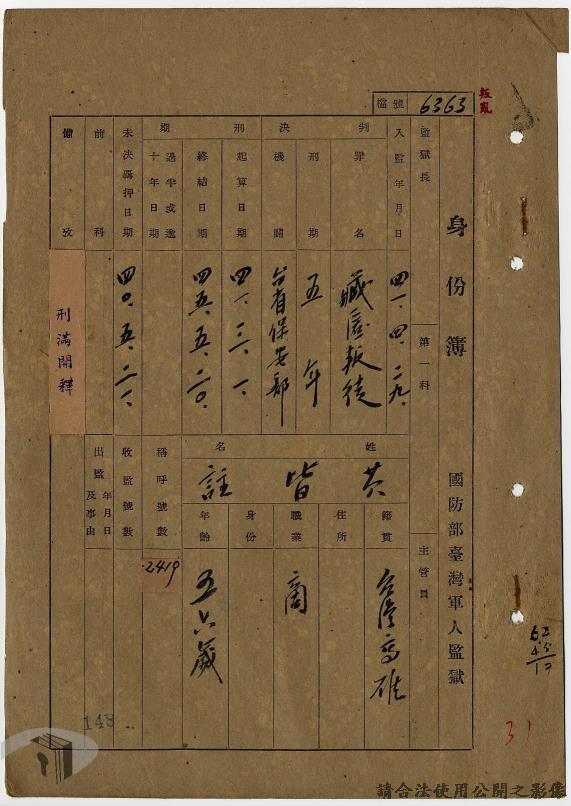 檔號 6363
叛亂
身份簿
國防部臺灣軍人監獄
監獄長
第一科
主管員
入監年月日
四一、四、二九、
判決刑期
罪名
藏匿叛徒
刑期
五年
機關
台省保安部
起算日期
終結日期
四五、五、二〇、
過半或逾十年日期
未決羈押日期
四〇、五、二一、
前科
備攷
刑滿開釋
姓名
黃皆註
籍貫
台灣高雄
住所
職業
商
身份
年齡
五六歲
稱呼號數
2419
收監號數
出監年月日及事由
148
31
請合法使用公開之影像